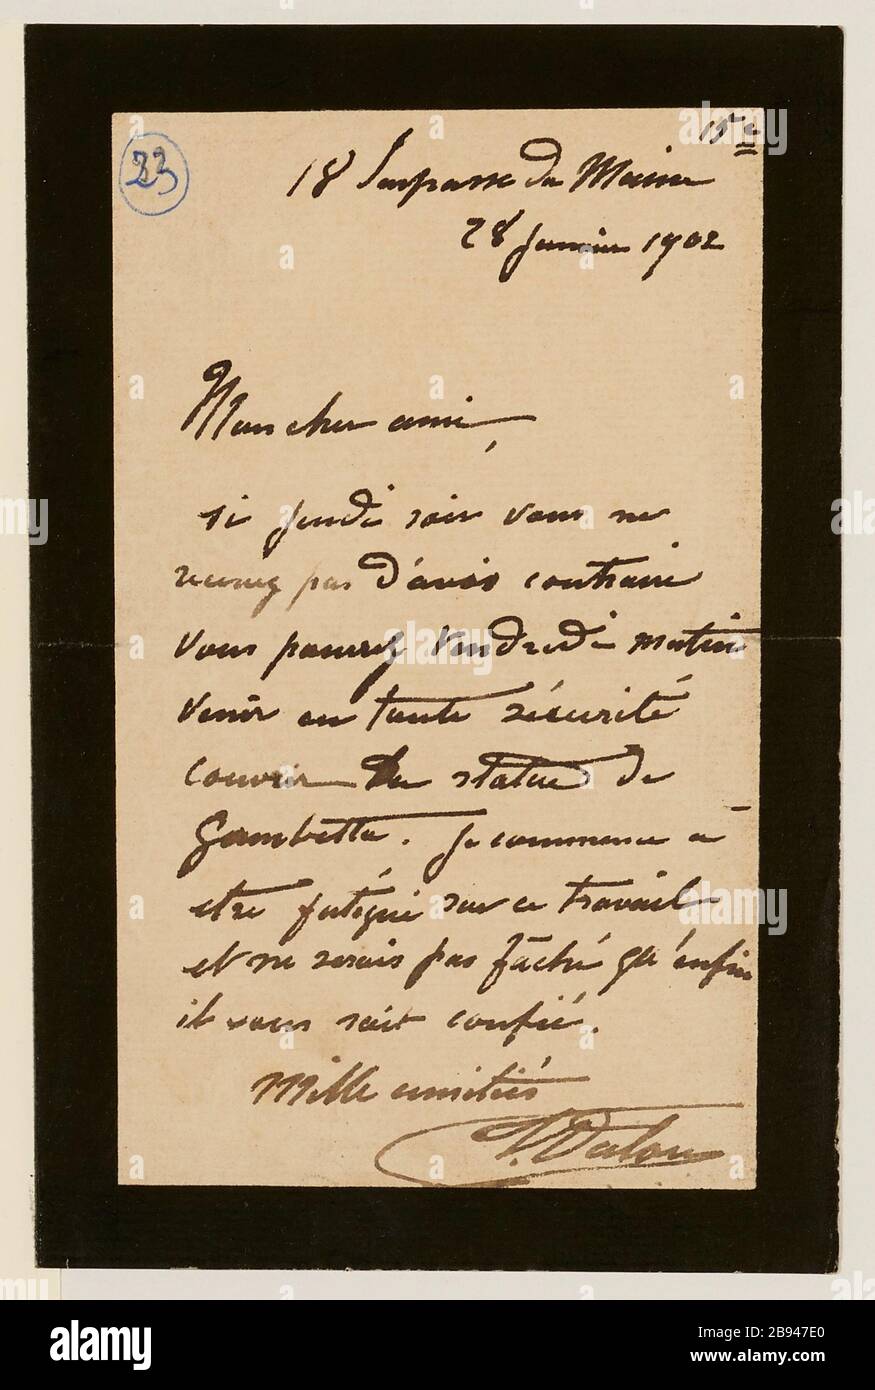 23
15e
18 Impasse du Maine
28 Janvier 1902
Mon cher ami,
si Jeudi soir vous ne
recevez pas d'avis contraire
vous pourrez vendredi matin
venir en toute sécurité
couvrir la statue de
Gambetta. Je commence à
etre fatigué sur ce travail
et ne serais pas fâché qu'enfin
il vous soit confié.
Mille amitiés
J. Dalou
alamy
Image ID: 2B947E0
www.alamy.com